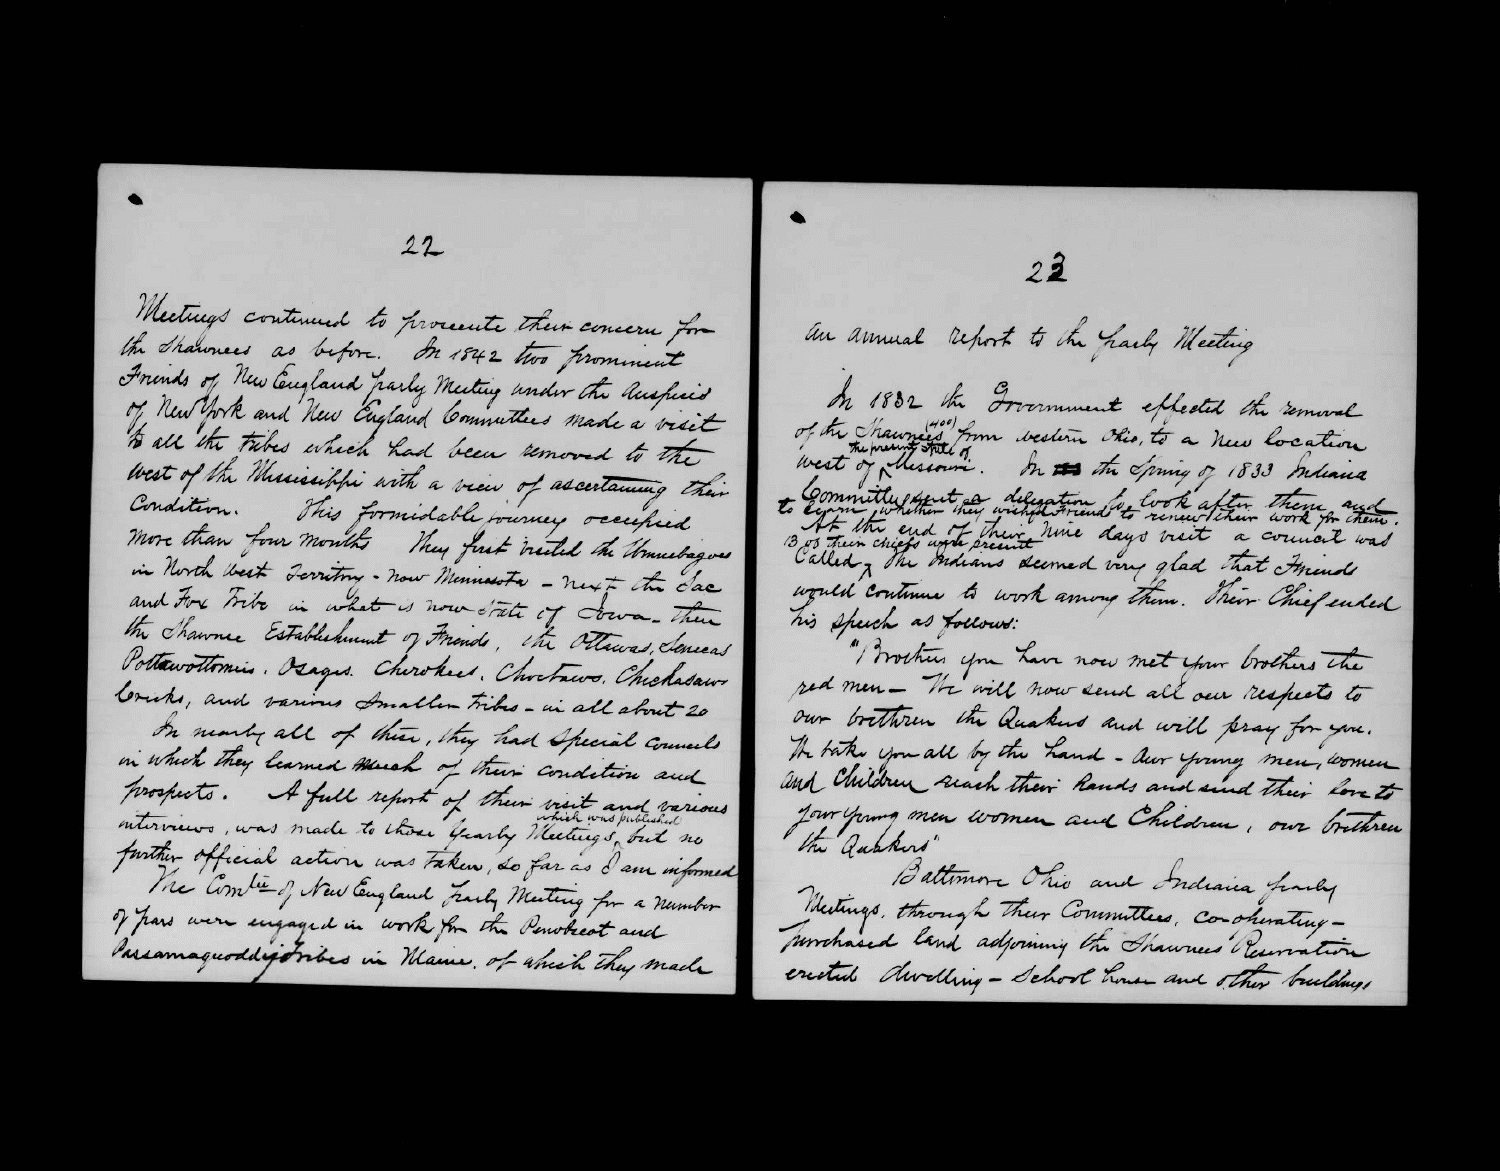 22
Meetings continued to prosecute their concern for
the Shawnees as before. In 1842 two prominent
Friends of New England Yearly Meeting under the Auspices
of New York and New England Committees made a visit
to all the tribes which had been removed to the
west of the Mississippi with a view of ascertaining their
Condition. This formidable journey occupied
more than four months They first visited the Winnebagoes
in North West Territory - now Minnesota - next the Sac
and Fox Tribe in what is now State of Iowa - then
the Shawnee Establishment of Friends, the Ottawas, Senecas
Pottawottomies. Osages. Cherokees. Choctaws. Chickasaws
Creeks, and various smaller tribes - in all about 20
In nearly all of these, they had special councils
in which they learned much of their condition and
prospects. A full report of their visit and various
which was published
interviews, was made to those Yearly Meetings, but no
further official action was taken, so far as I am informed
The Comtee of New England Yearly Meeting for a number
of years were engaged in work for the Penobscot and
Passamaquoddy Tribes in Maine. of which they made
23
an annual report to the Yearly Meeting
In 1832 the Government effected the removal
(400)
of the Shawnees from western Ohio, to a new location
the present State of
west of Missouri. In the Spring of 1833 Indiana
Committee sent a delegation to look after them and
to learn whether they wished Friends to renew their work for them.
At the end of their nine days visit a council was
13 of their chiefs were present
Called The Indians seemed very glad that Friends
would continue to work among them. Their Chief ended
his speech as follows:
"Brothers you have now met your brothers the
red men - We will now send all our respects to
our brethren the Quakers and will pray for you.
We take you all by the hand - Our young men, women
and Children reach their hands and send their love to
your young men women and Children, our brethren
the Quakers"
Baltimore Ohio and Indiana Yearly
Meetings, through their Committees, co-operating -
purchased land adjoining the Shawnees Reservation
erected dwelling - School house and other buildings